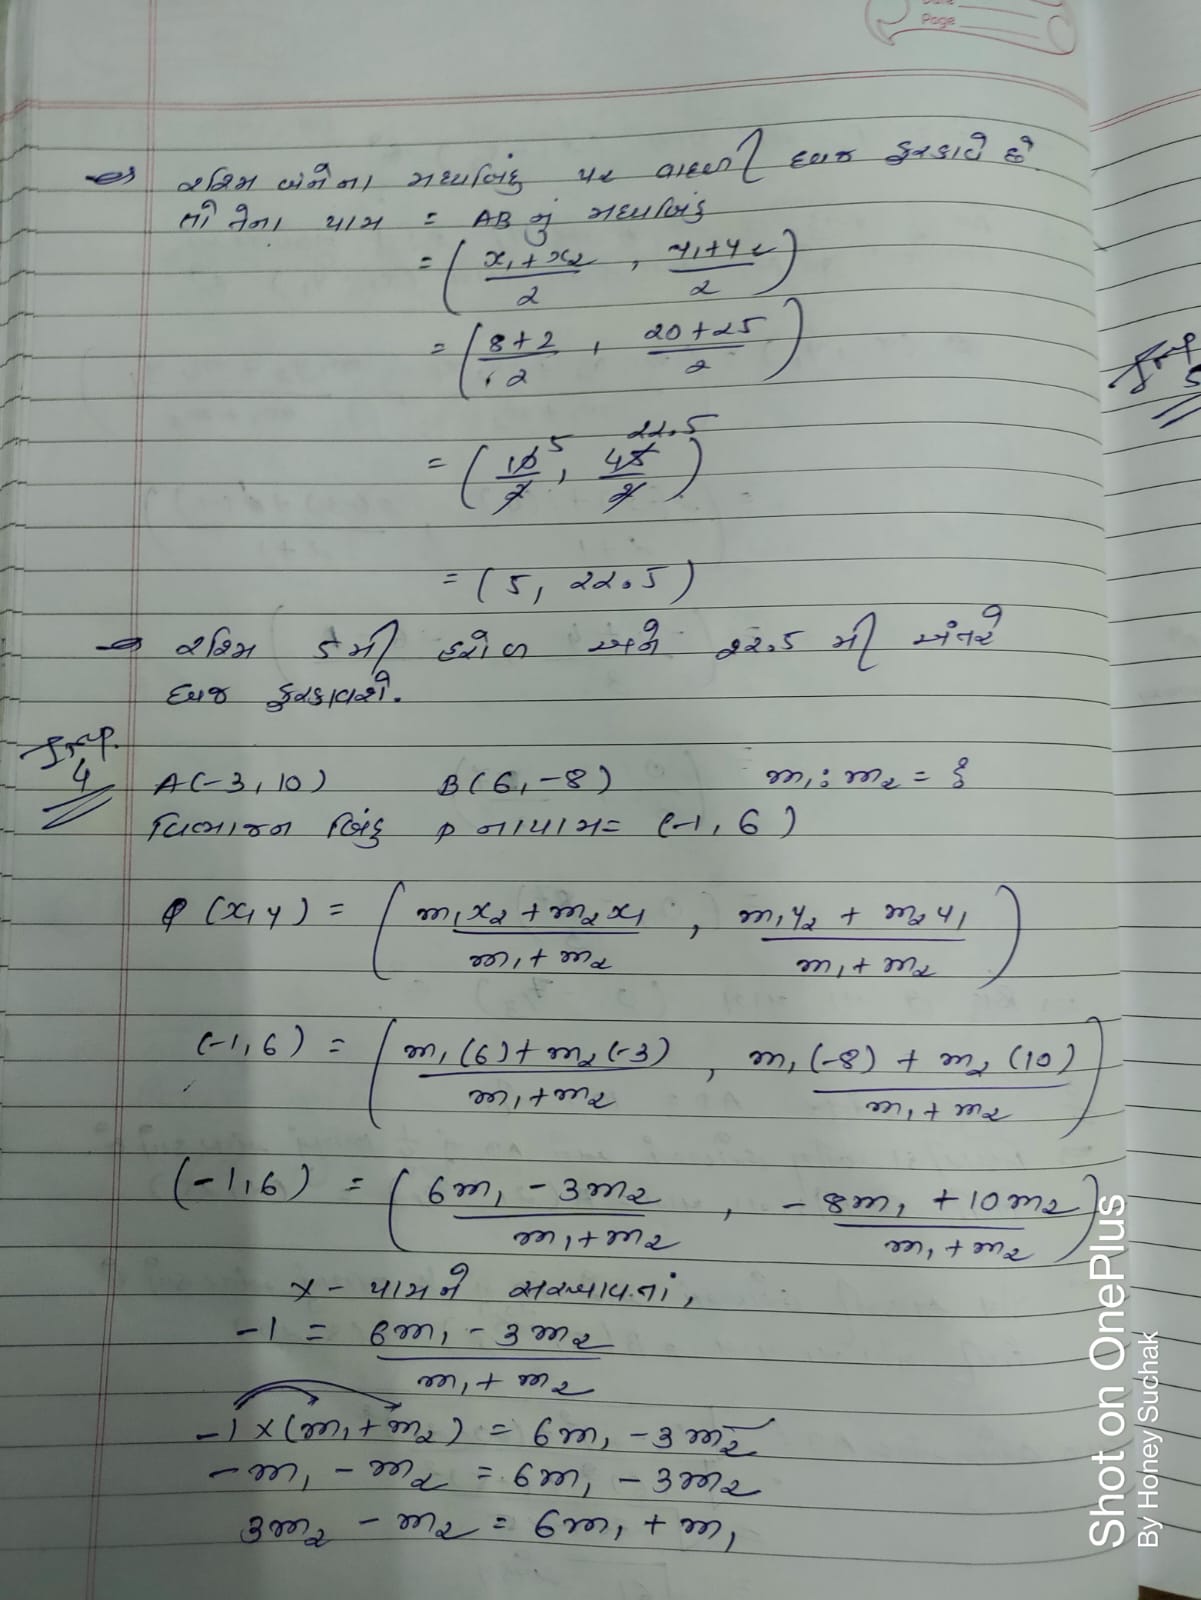 Page
→ રશ્મિ બંનેના મધ્યબિંદુ પર વાદળી ધ્વજ ફરકાવે છે
તો તેના યામ = AB નું મધ્યબિંદુ
= ( x₁ + x₂ / 2 , y₁ + y₂ / 2 )
= ( 8 + 2 / 2 , 20 + 25 / 2 )
= ( 10 / 2 5 , 45 / 2 22.5 )
= ( 5, 22.5 )
→ રશ્મિ 5 મી હરોળ અને 22.5 મી અંતરે
ધ્વજ ફરકાવશે.
Imp.
4
A(-3, 10) B(6, -8) m₁ : m₂ = ?
વિભાજન બિંદુ P ના યામ = (-1, 6)
P (x, y) = ( m₁x₂ + m₂x₁ / m₁ + m₂ , m₁y₂ + m₂y₁ / m₁ + m₂ )
(-1, 6) = ( m₁(6) + m₂(-3) / m₁ + m₂ , m₁(-8) + m₂(10) / m₁ + m₂ )
(-1, 6) = ( 6m₁ - 3m₂ / m₁ + m₂ , - 8m₁ + 10m₂ / m₁ + m₂ )
x - યામને સરખાવતાં,
-1 = 6m₁ - 3m₂ / m₁ + m₂
-1 × (m₁ + m₂) = 6m₁ - 3m₂
- m₁ - m₂ = 6m₁ - 3m₂
3m₂ - m₂ = 6m₁ + m₁
Imp
5
Shot on OnePlus
By Honey Suchak